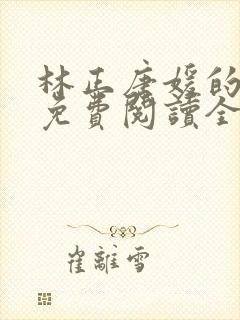 林正唐媛的
免費閱讀全
崔離雪